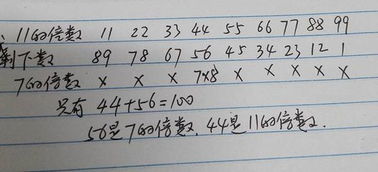 : 11的倍数 11 22 33 44 55 66 77 88 99
剩下数 89 78 67 56 45 34 23 12 1
7的倍数 x x x 7x8 x x x x x
只有 44+56=100
56是7的倍数, 44是11的倍数.